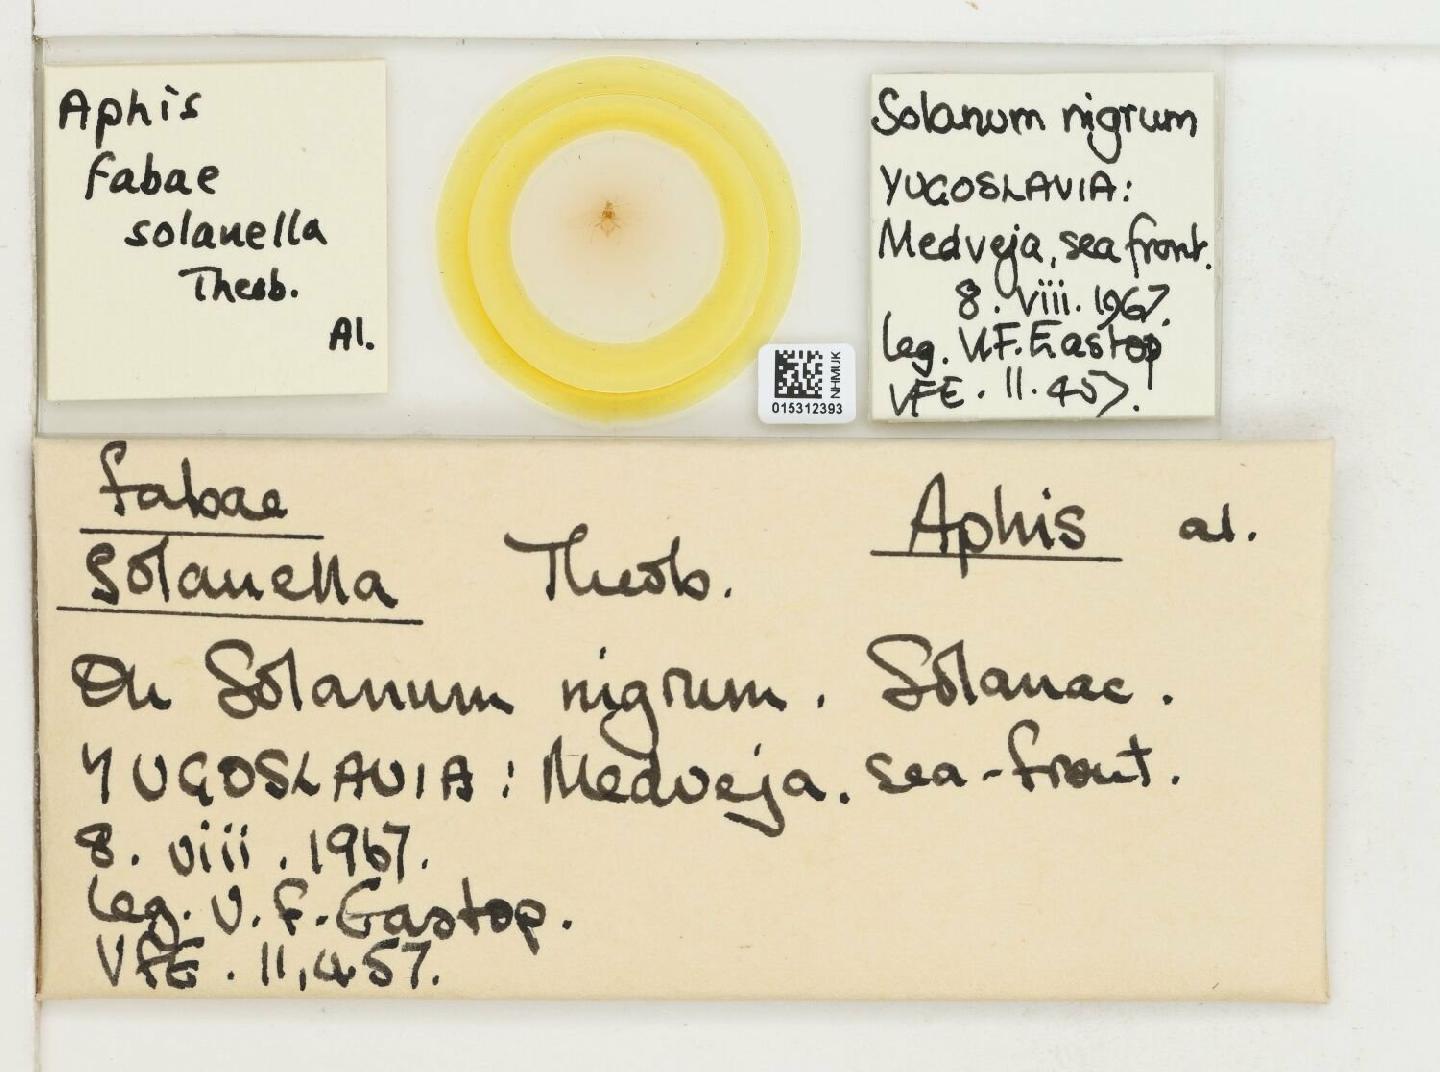 Aphis
fabae
solanella
Theob.
Al.
NHMUK
015312393
Solanum nigrum
YUGOSLAVIA:
Medveja, sea front.
8. viii. 1967.
leg. V.F. Eastop
VFE. 11.457.
fabae
Aphis al.
solanella Theob.
On Solanum nigrum. Solanac.
YUGOSLAVIA: Medveja. sea-front.
8. viii. 1967.
leg. V. F. Eastop.
VFE. 11,457.